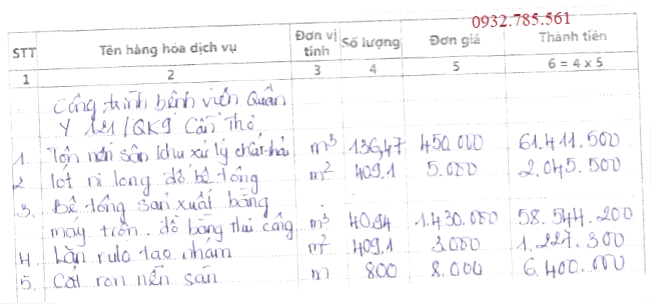 0932.785.561
STT Tên hàng hóa dịch vụ Đơn vị tính Số lượng Đơn giá Thành tiền
1 2 3 4 5 6 = 4 x 5
Công trình bệnh viện Quân
Y 121/QK9 Cần Thơ,
1. Tôn nền sân khu xử lý chất thải m³ 136,47 450.000 61.411.500
2 lót ni long đổ bê tông m² 409,1 5.000 2.045.500
3. Bê tông sản xuất bằng
máy trộn. đổ bằng thủ công m³ 40,94 1.430.000 58.544.200
4. Lăn rulo tạo nhám m² 409,1 3.000 1.227.300
5. Cắt ron nền sân m 800 8.000 6.400.000